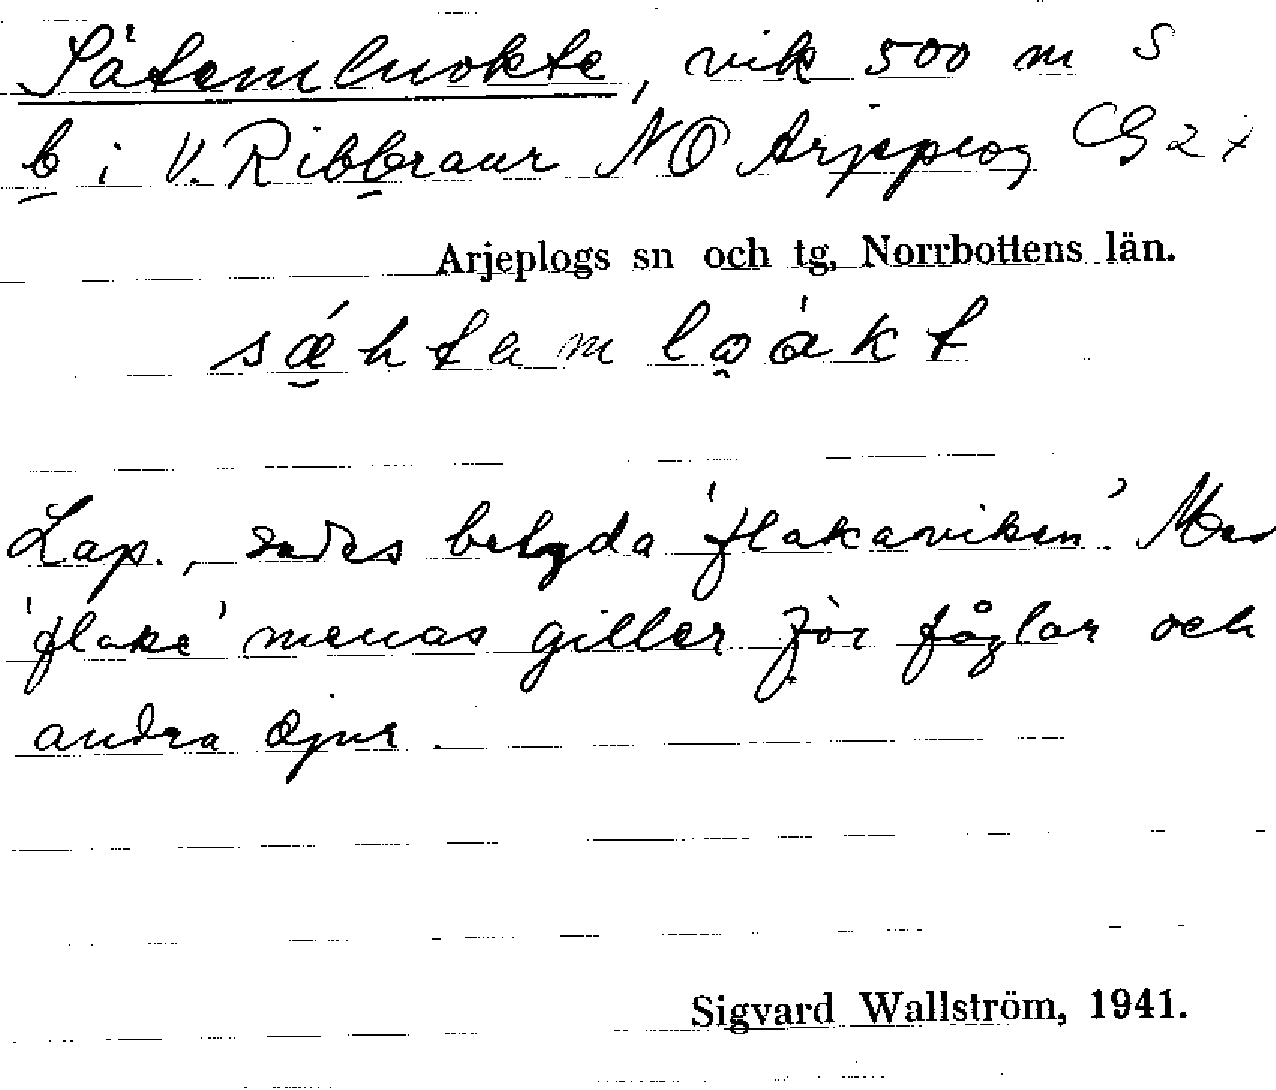 Sätemluokte, vik 500 m S
b i V. Ribbraur NO Arjeplog
Arjeplogs sn och tg, Norrbottens län.
sǽhtam lo̯ȧkt
Lap., sades betyda 'flakaviken'. Med
'flake' menas giller för fåglar och
andra djur
Sigvard Wallström, 1941.